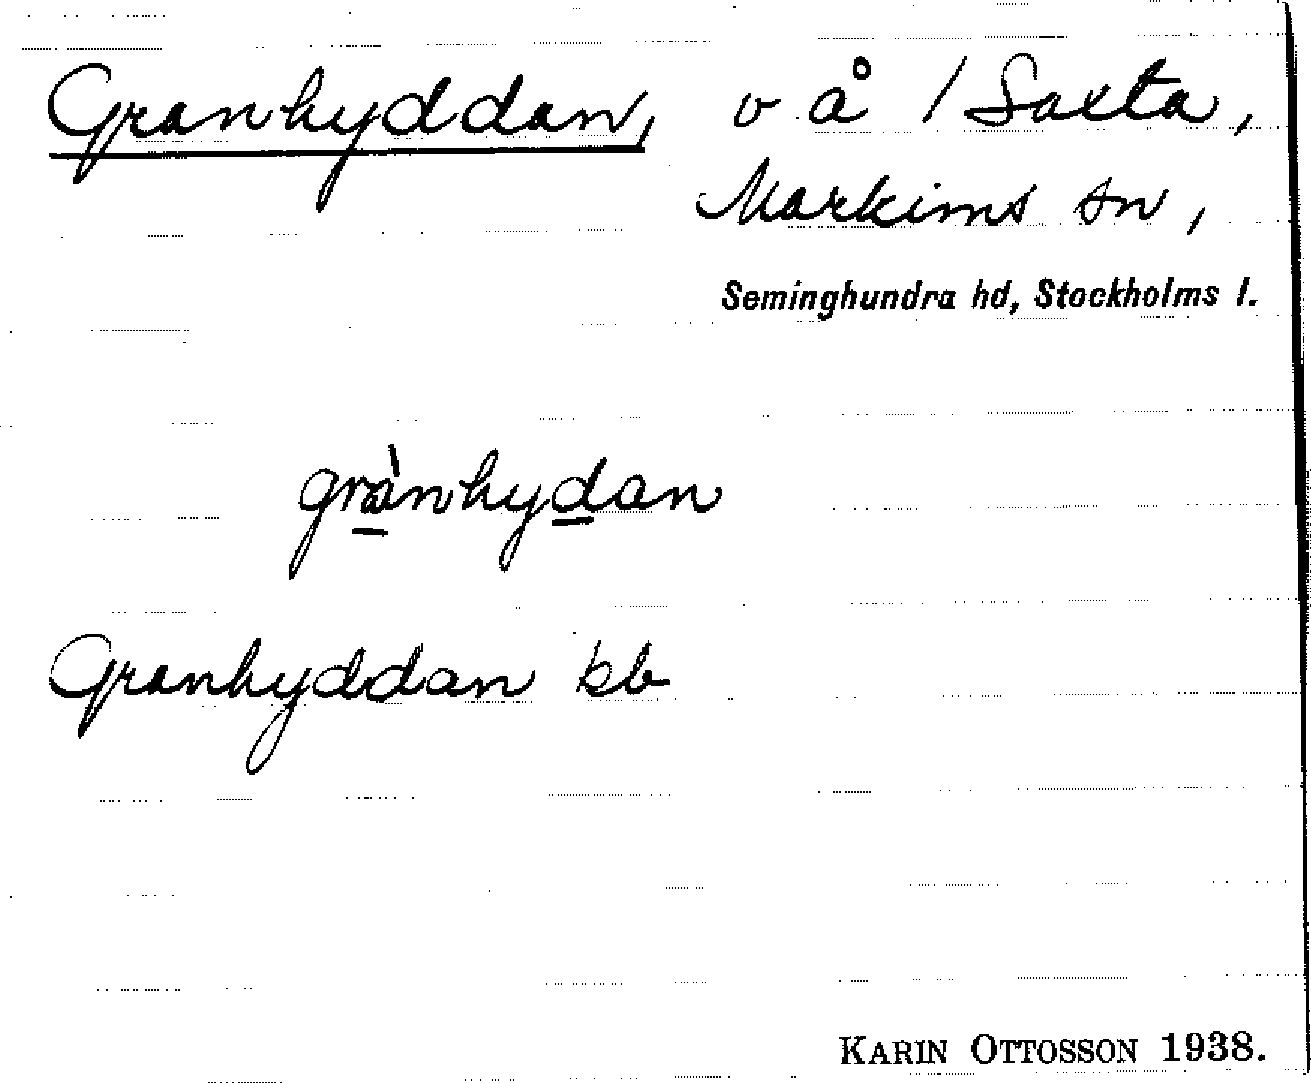 Granhyddan, v å 1 Saxta,
Markims sn,
Seminghundra hd, Stockholms l.
grȧ̠nhyd̠an
Granhyddan kb
KARIN OTTOSSON 1938.